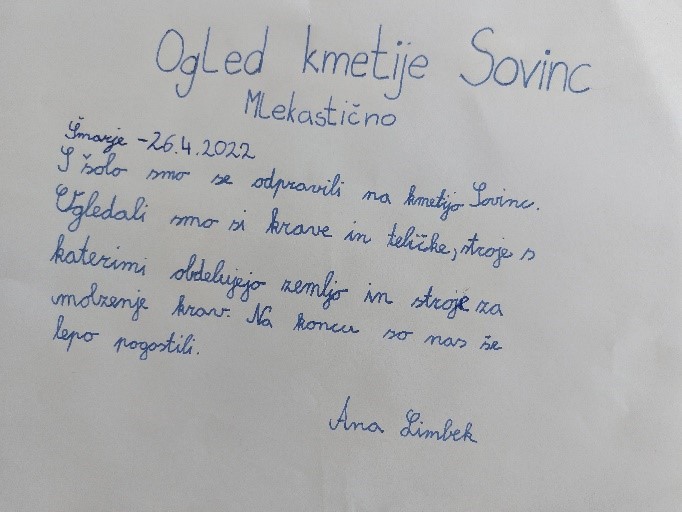 OgLed kmetije Sovinc
MLekastično
Šmarje - 26.4.2022
S šolo smo se odpravili na kmetijo Sovinc.
Ogledali smo si krave in teličke, stroje s
katerimi obdelujejo zemljo in stroje za
molzenje krav. Na koncu so nas še
lepo pogostili.
Ana Limbek